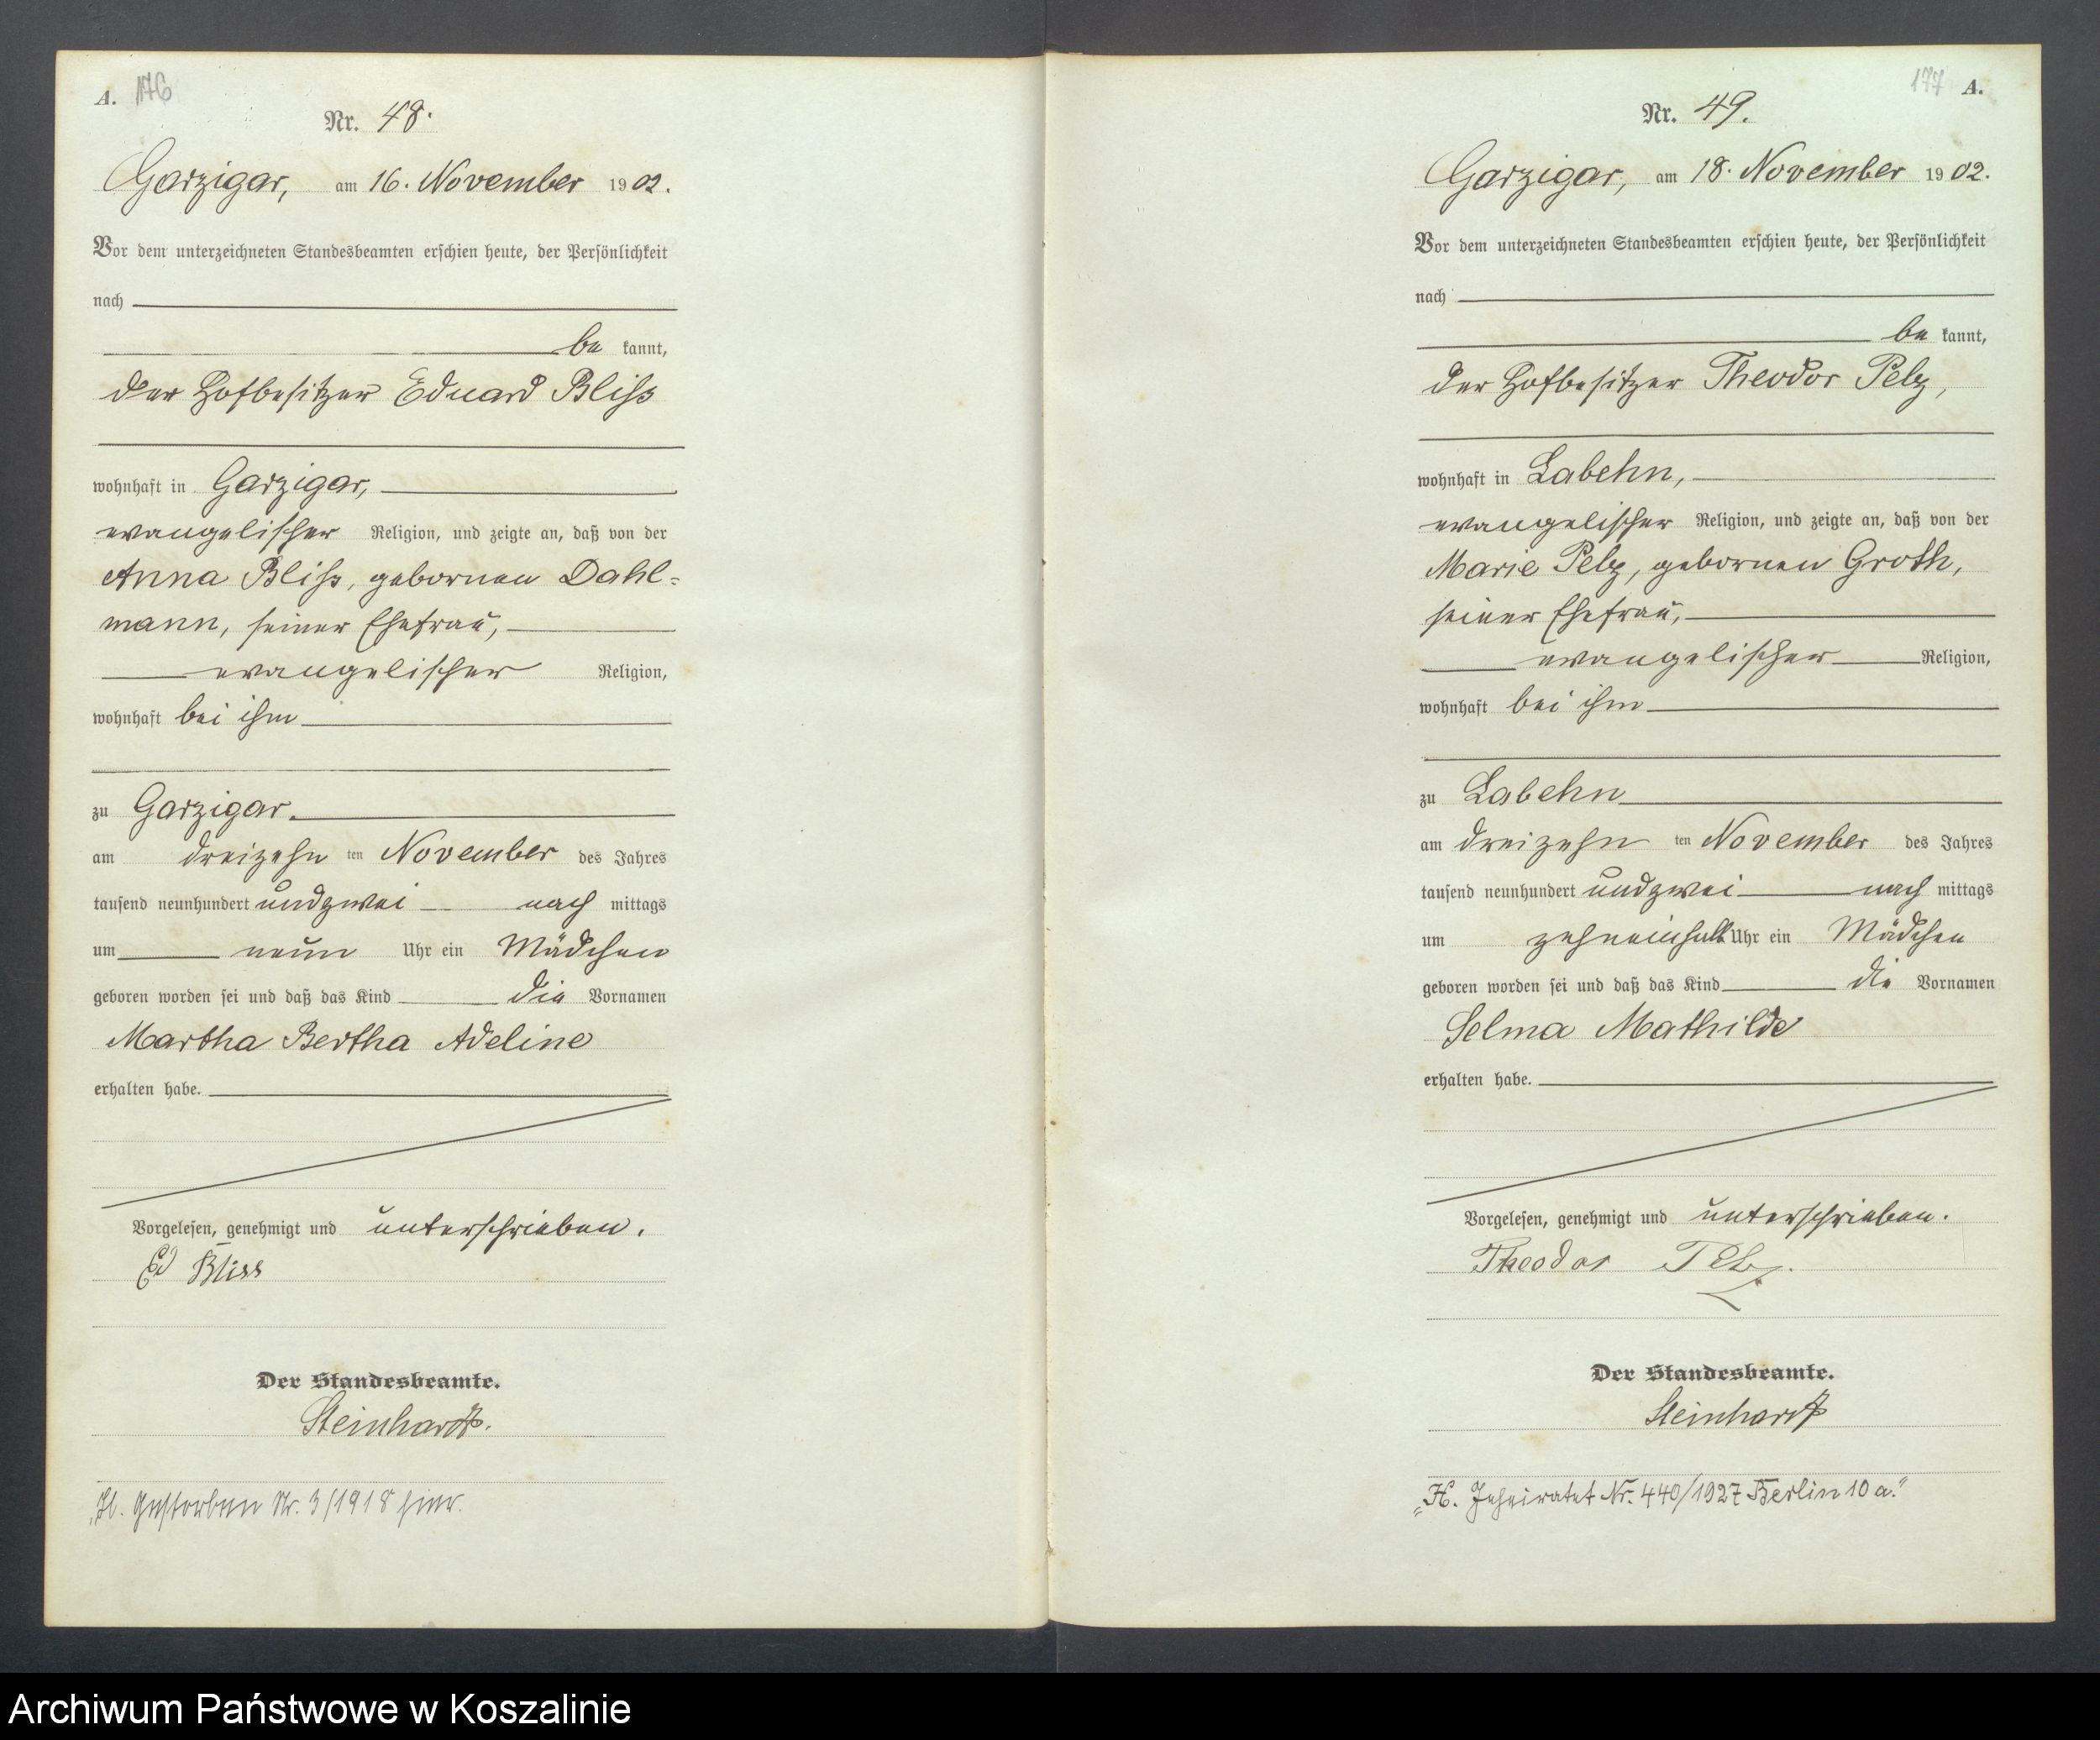 A. 176
Nr. 48.
Garzigar, am 16. November 1902.
Vor dem unterzeichneten Standesbeamten erschien heute, der Persönlichkeit
nach
be kannt,
der Hofbesitzer Eduard Bliss
wohnhaft in Garzigar,
evangelischer Religion, und zeigte an, daß von der
Anna Bliss, gebornen Dahl=
mann, seiner Ehefrau,
evangelischer Religion,
wohnhaft bei ihm
zu Garzigar.
am dreizehn ten November des Jahres
tausend neunhundert undzwei nach mittags
um neun Uhr ein Mädchen
geboren worden sei und daß das Kind die Vornamen
Martha Bertha Adeline
erhalten habe.
Vorgelesen, genehmigt und unterschrieben.
Ed Bliss
Der Standesbeamte.
Steinhardt.
Gestorben Nr. 3/1918 hier.
177 A.
Nr. 49.
Garzigar, am 18. November 1902.
Vor dem unterzeichneten Standesbeamten erschien heute, der Persönlichkeit
nach
be kannt,
der Hofbesitzer Theodor Pelz,
wohnhaft in Labehn,
evangelischer Religion, und zeigte an, daß von der
Marie Pelz, gebornen Groth,
seiner Ehefrau,
evangelischer Religion,
wohnhaft bei ihm
zu Labehn
am dreizehn ten November des Jahres
tausend neunhundert undzwei nach mittags
um zehneinhalb Uhr ein Mädchen
geboren worden sei und daß das Kind die Vornamen
Selma Mathilde
erhalten habe.
Vorgelesen, genehmigt und unterschrieben.
Theodor Pelz.
Der Standesbeamte.
Steinhardt
"H. Geheiratet Nr. 440/1927 Berlin 10 a."
Archiwum Państwowe w Koszalinie